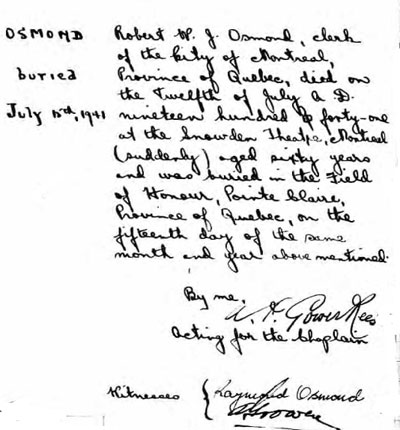 OSMOND
buried
July 15th, 1941
Robert W. J. Osmond, clerk
of the City of Montreal,
Province of Quebec, died on
the Twelfth of July A.D.
nineteen hundred & forty-one
at the Snowden Theatre, Montreal
(suddenly) aged sixty years
and was buried in the Field
of Honour, Pointe Claire,
Province of Quebec, on the
fifteenth day of the same
month and year above mentioned.
By me,
Gower Rees
Acting for the Chaplain
Witnesses { Raymond Osmond